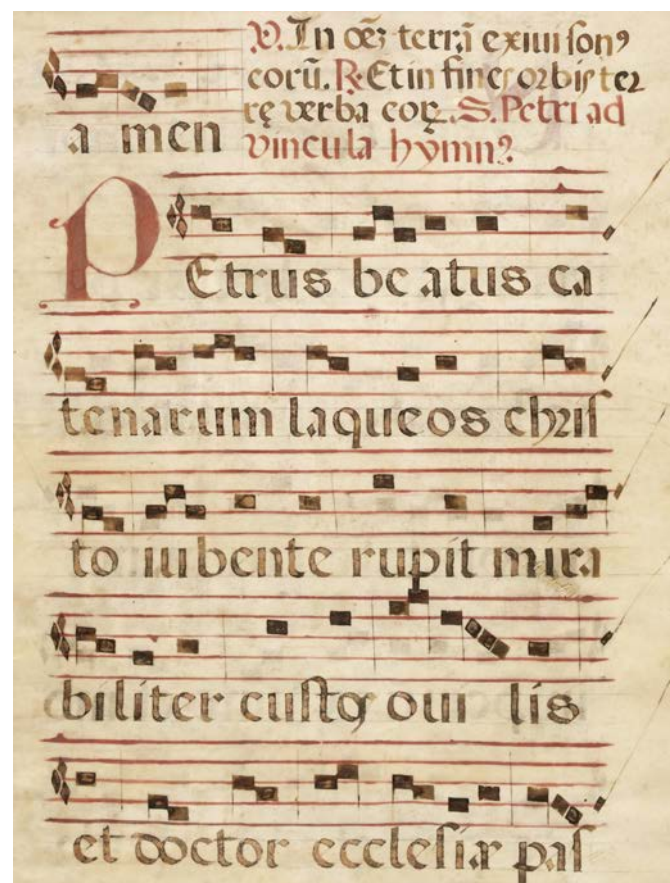 ℣. In oēꝫ terrā exiui sonꝰ
eorū. ℟. Et in fines orbis ter
rę verba eoꝝ. S. Petri ad
vincula hymnꝰ.
a men
PEtrus be atus ca
tenarum laqueos chris
to iubente rupit mira
biliter custos oui lis
et doctor ecclesiæ pas